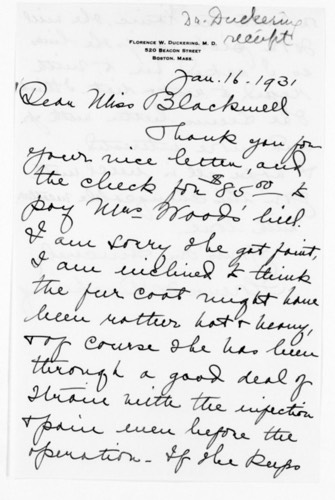 Dr. Duckering
receipt
FLORENCE W. DUCKERING, M. D.
520 BEACON STREET
BOSTON, MASS.
Jan. 16 - 1931
Dear Miss Blackwell
Thank you for
your nice letter, and
the check for $85.00 to
pay Mrs Woods' bill.
I am sorry she got faint,
I am inclined to think
the fur coat might have
been rather hot & heavy,
& of course she has been
through a good deal of
strain with the infection
& pain even before the
operation - If she keeps